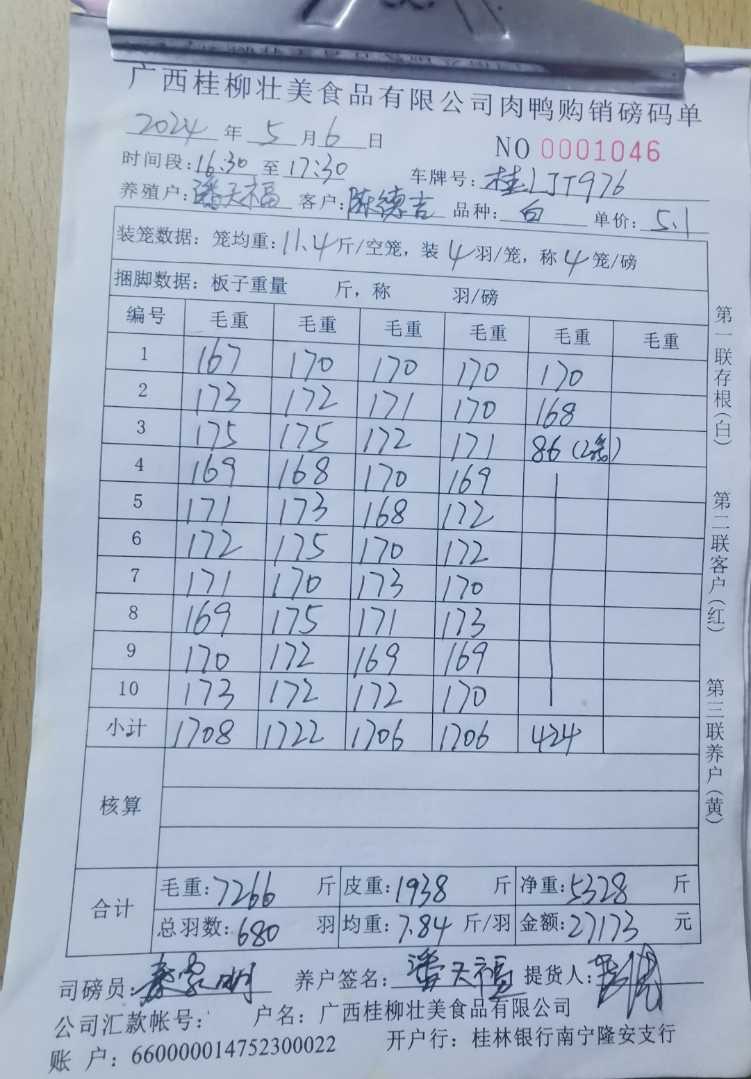 广西桂柳壮美食品有限公司肉鸭购销磅码单
2024 年 5 月 6 日 NO 0001046
时间段:16:30 至 17:30 车牌号:桂LJT976
养殖户:潘天福 客户:陈德吉 品种:白 单价:5.1
装笼数据:笼均重:11.4斤/空笼,装4羽/笼,称4笼/磅
捆脚数据:板子重量 斤,称 羽/磅
编号 毛重 毛重 毛重 毛重 毛重 毛重
1 167 170 170 170 170
2 173 172 171 170 168
3 175 175 172 171 86(2笼)
4 169 168 170 169
5 171 173 168 172
6 172 175 170 172
7 171 170 173 170
8 169 175 171 173
9 170 172 169 169
10 173 172 172 170
小计 1708 1722 1706 1706 424
核算
合计 毛重:7266 斤 皮重:1938 斤 净重:5328 斤
总羽数:680 羽 均重:7.84 斤/羽 金额:27173 元
司磅员: 养户签名:潘天福 提货人:
公司汇款帐号: 户名:广西桂柳壮美食品有限公司
账 户:660000014752300022 开户行:桂林银行南宁隆安支行
第一联存根(白)
第二联客户(红)
第三联养户(黄)